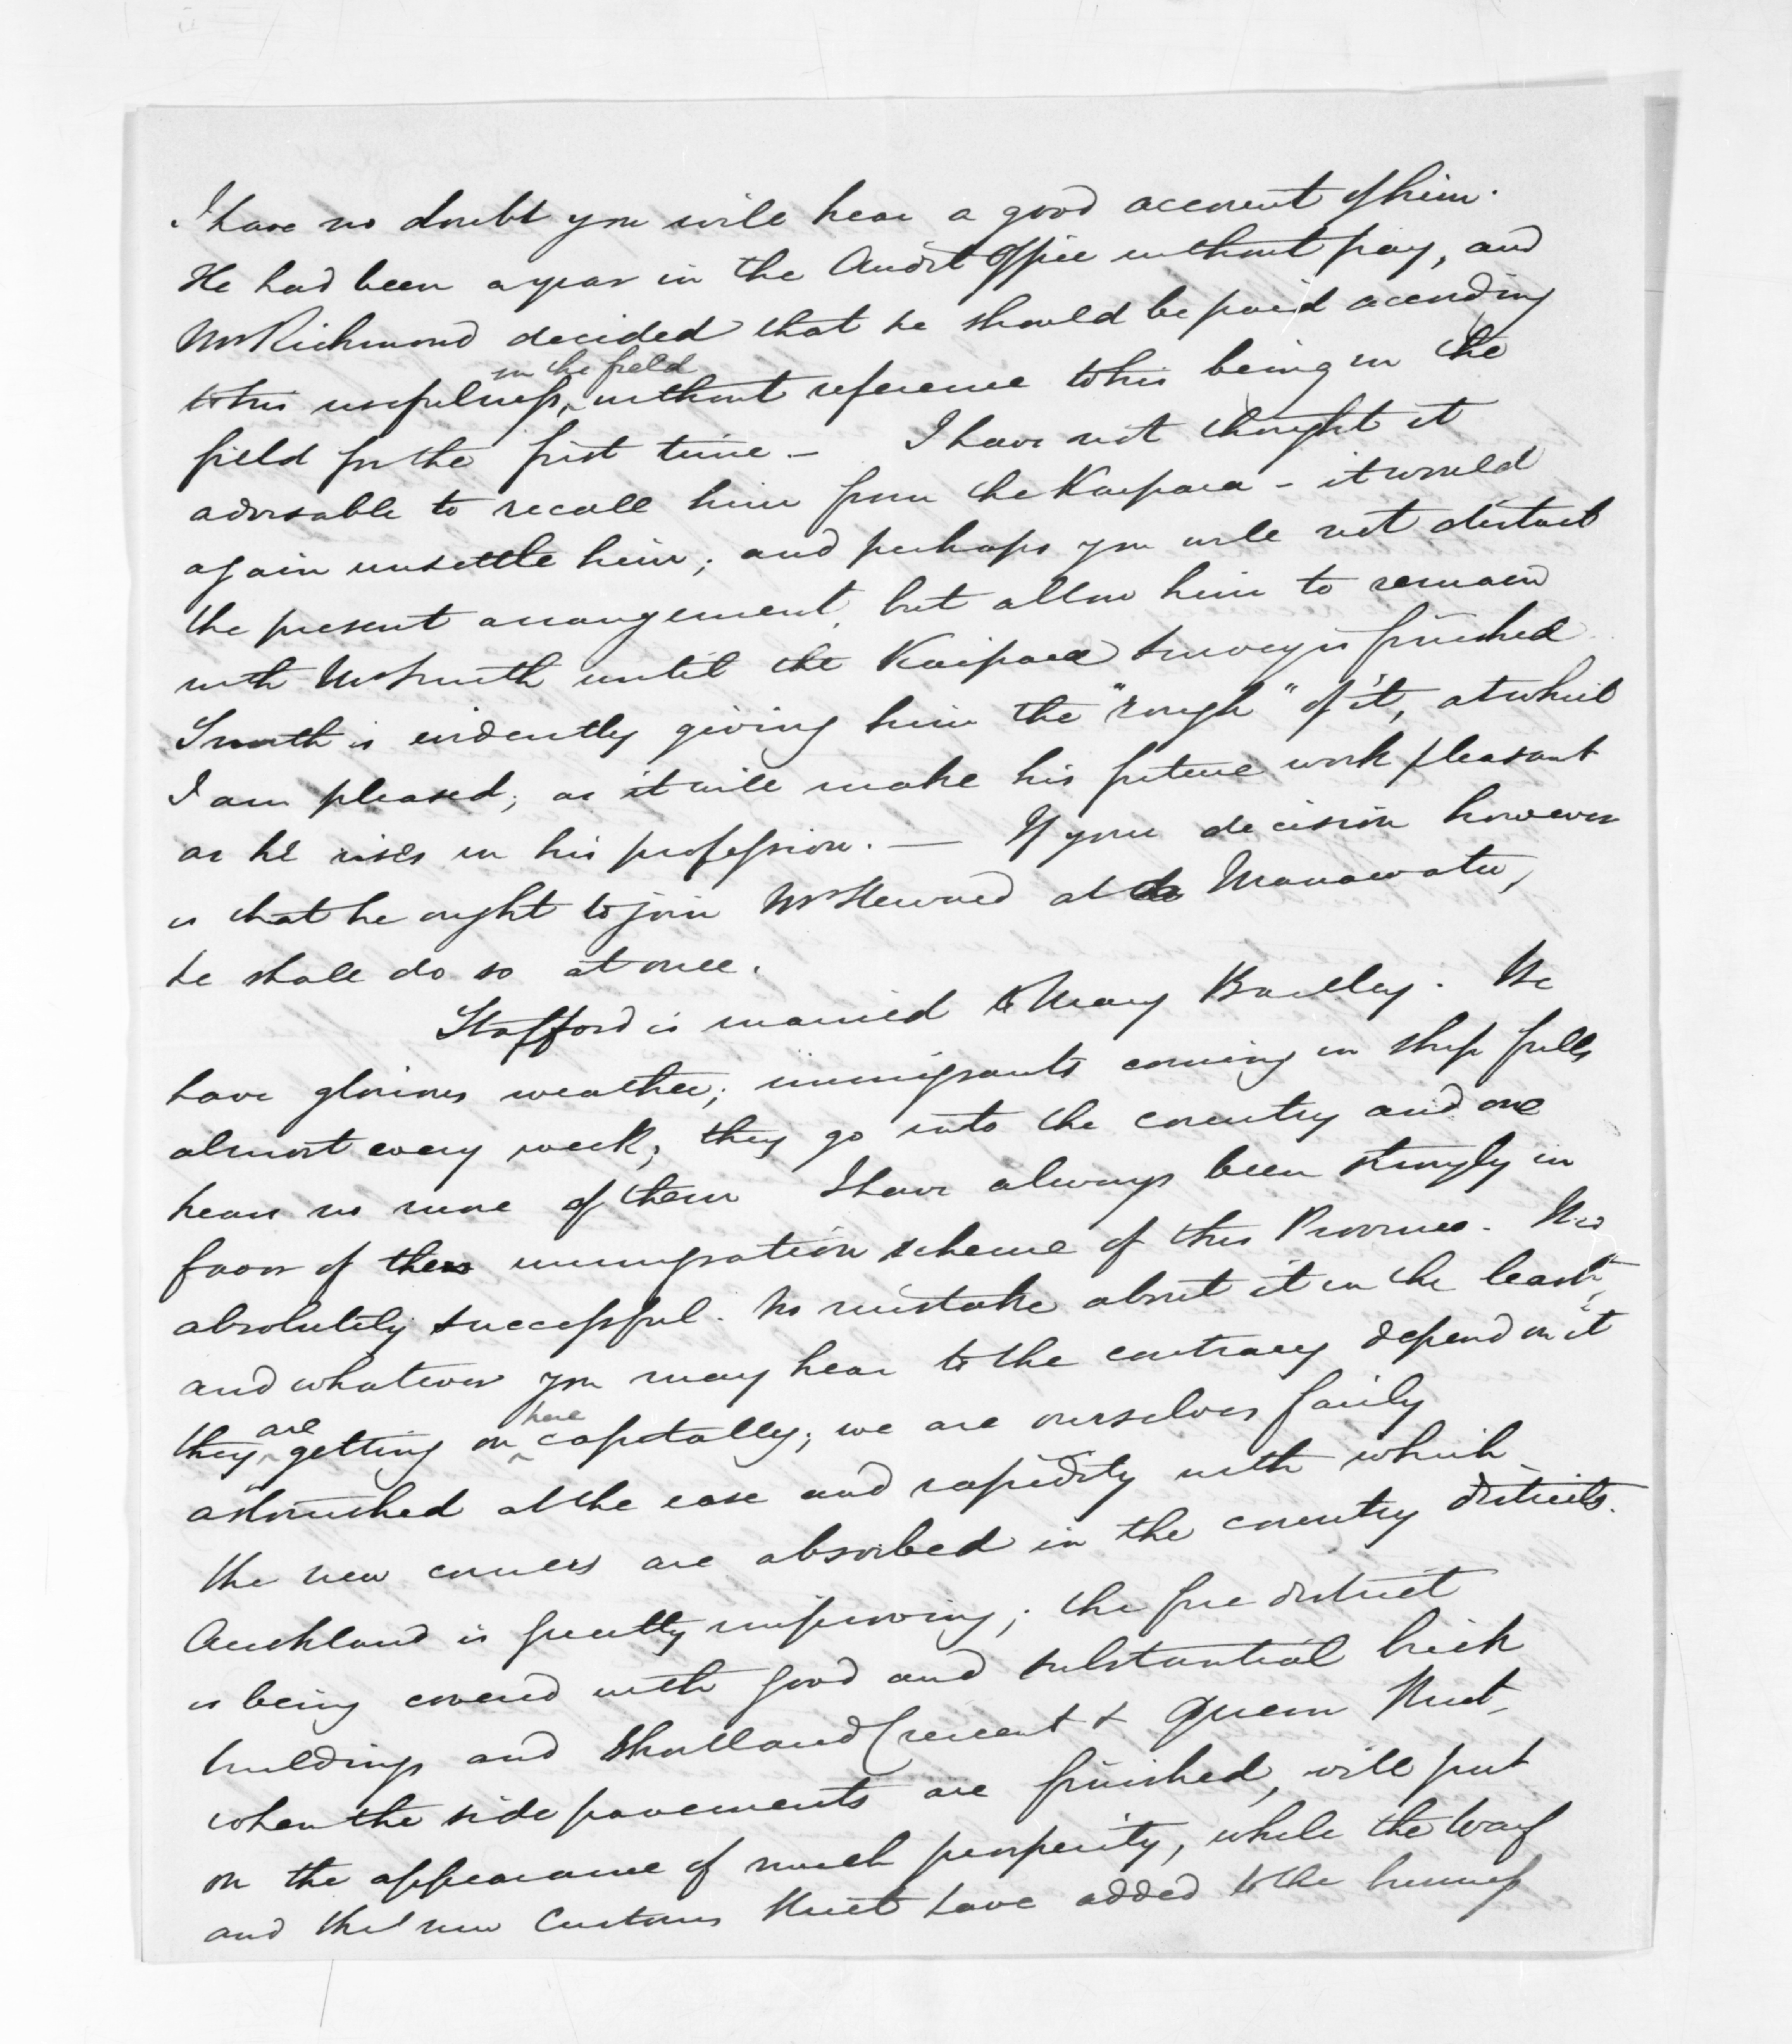 I have no doubt you will hear a good account of him.
He had been a year in the Audit Office without pay, and
Mr Richmond decided that he should be paid according
in the field
to his usefulness, without reference to his being in the
field for the first time - I have not thought it
advisable to recall him from the Kaipara - it would
again unsettle him; and perhaps you will not disturb
the present arrangement, but allow him to remain
with Mr Smith until the Kaipara survey is finished
Smith is evidently giving him the "rough" of it, at which
I am pleased; as it will make his future work pleasant
as he rises in his profession. — If your decision however
is that he ought to join Mr Steward at Manawatu,
he shall do so at once.
Stafford is married to Mary Bartley. We
have glorious weather; immigrants coming in ship fulls
almost every week; they go into the country and one
hears no more of them I have always been strongly in
favor of the immigration scheme of this Province. It is
absolutely successful. No mistake about it in the least,
and whatever you may hear to the contrary depend on it
are here
they getting on capitally; we are ourselves fairly
astonished at the ease and rapidity with which
the new comers are absorbed in the country districts.
Auckland is greatly improving; the fire district
is being covered with good and substantial brick
buildings and Shortland Crescent & Queen Street,
when the side pavements are finished, will put
on the appearance of much prosperity, while the Warf
and the new Customs Street have added to the business